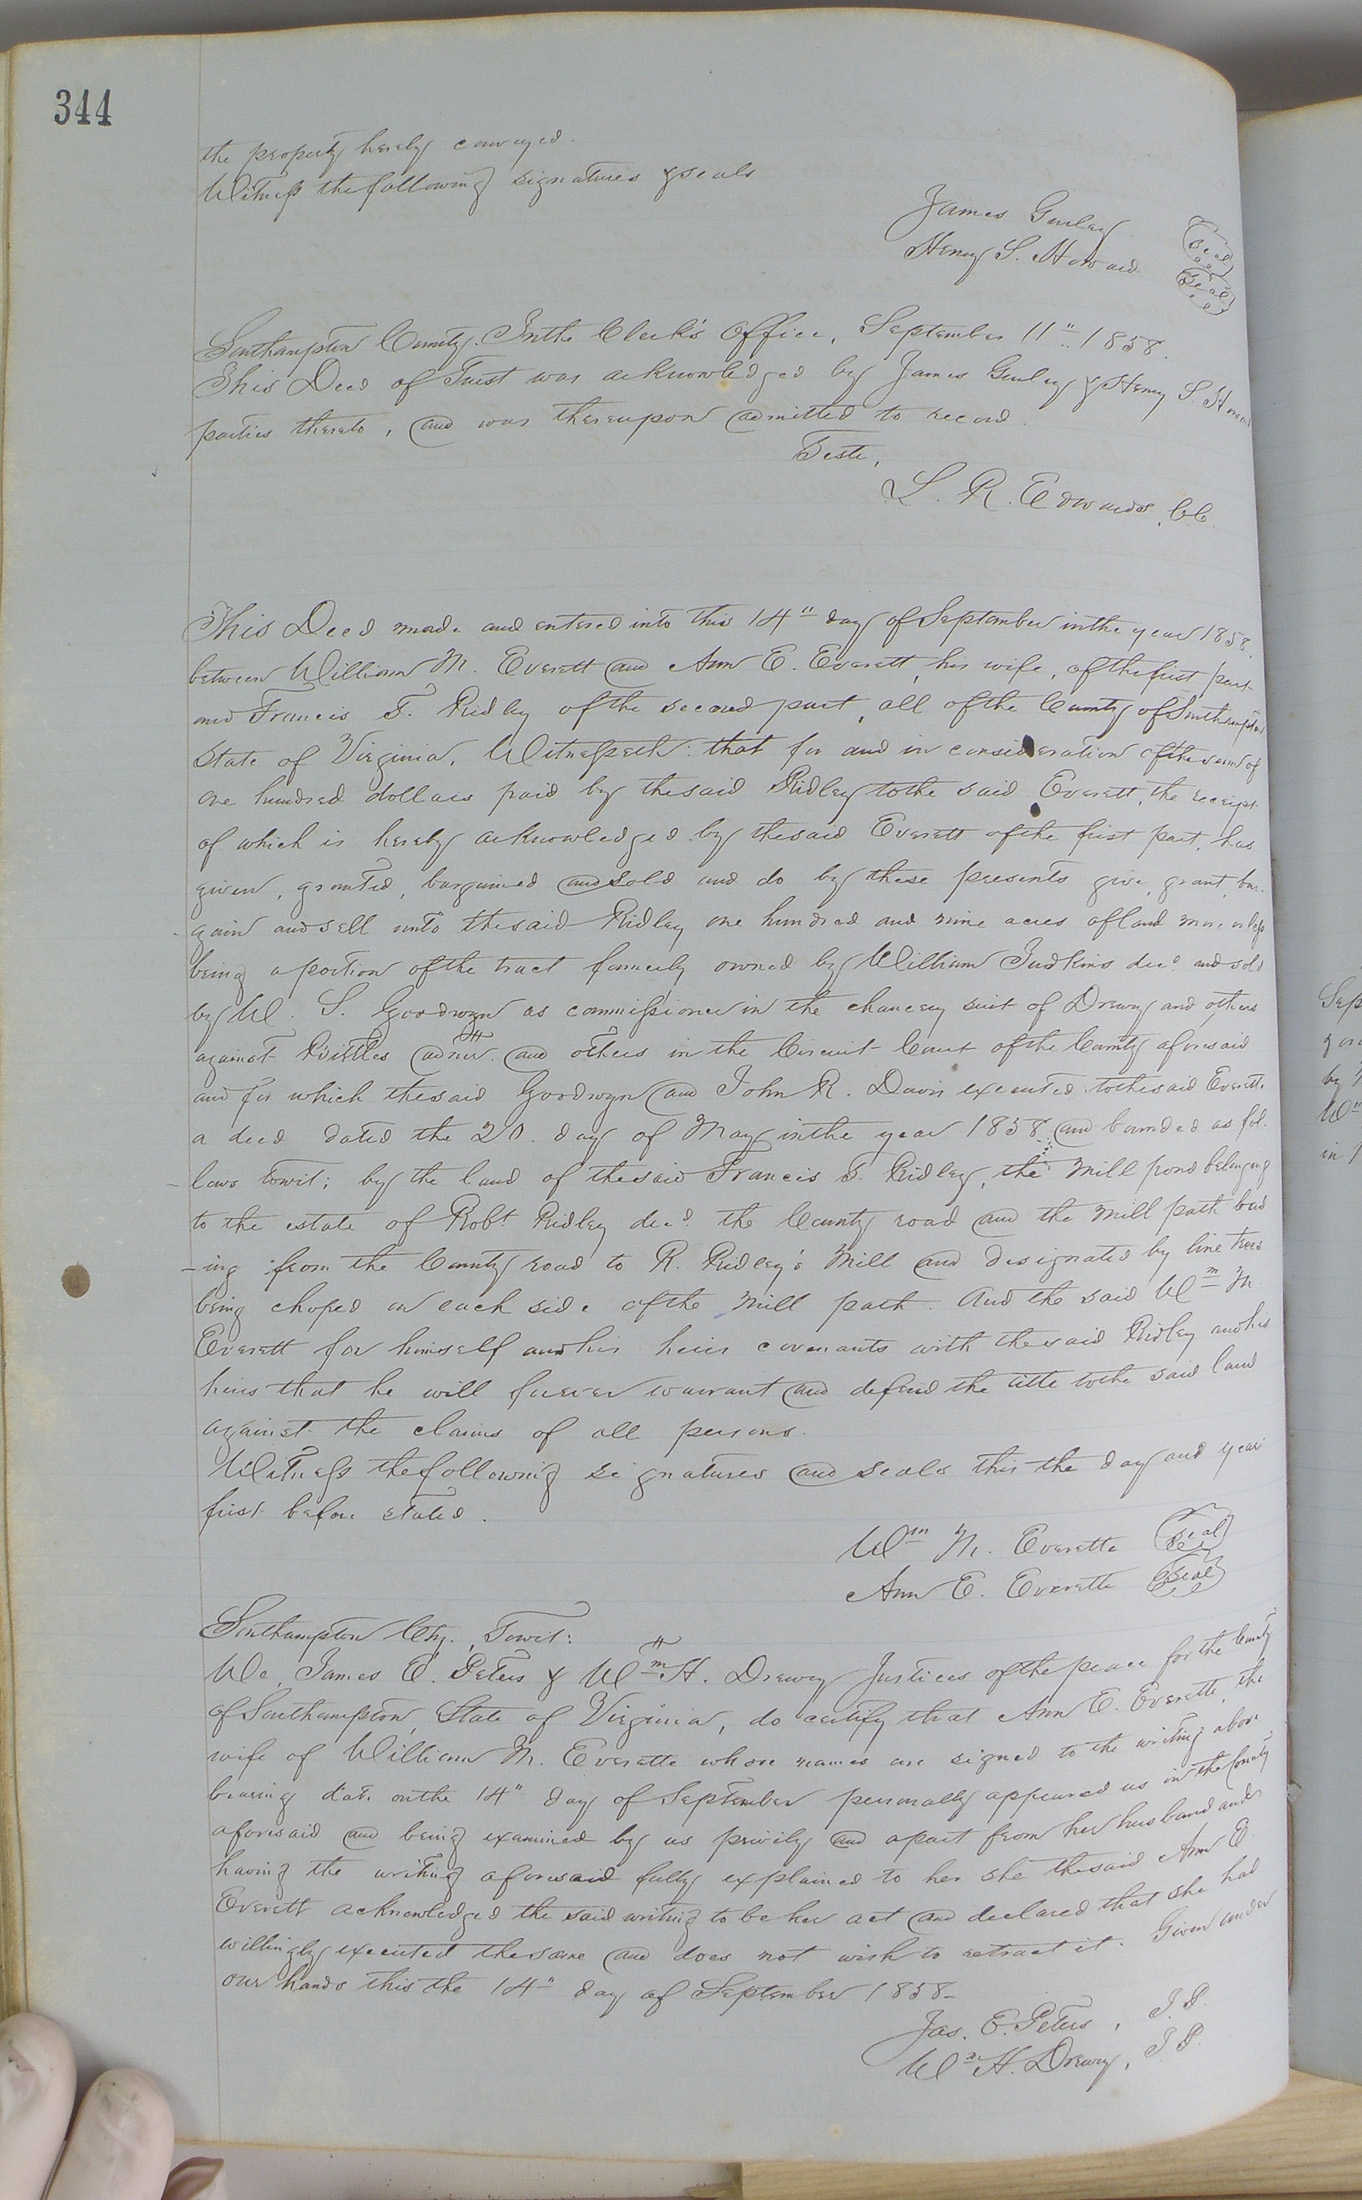 344
the property hereby conveyed.
Witness the following signatures & seals
James Gurley Seal
Henry S. Howard Seal
Southampton County. In the Clerk's Office, September 11" 1858.
This Deed of Trust was acknowledged by James Gurley & Henry S. Howard
parties thereto, and was thereupon admitted to record.
Teste,
L. R. Edwards, CC
This Deed made and entered into this 14" day of September in the year 1858,
between William M. Everett and Ann E. Everett, his wife, of the first part
and Francis T. Ridley of the second part, all of the County of Southampton
State of Virginia, Witnesseth: that for and in consideration of the sum of
one hundred dollars paid by the said Ridley to the said Everett, the receipt
of which is hereby acknowledged by the said Everett of the first part, has
given, granted, bargained and sold and do by these presents give, grant, bar-
gain and sell unto the said Ridley one hundred and nine acres of land more or less
being a portion of the tract formerly owned by William Judkins decd. and sold
by W. S. Goodwyn as commissioner in the chancery suit of Drewry and others
against admr. and others in the Circuit Court of the County aforesaid
and for which the said Goodwyn and John R. Davis executed to the said Everett
a deed dated the 20. day of May in the year 1858 and bounded as fol-
lows towit; by the land of the said Francis T. Ridley, the Mill pond belonging
to the estate of Robt. Ridley decd. the County road and the Mill path lead
-ing from the County road to R. Ridley's Mill and designated by line trees
being choped on each side of the Mill path. And the said Wm M.
Everett for himself and his heirs covenants with the said Ridley and his
heirs that he will forever warrant and defend the title to the said land
against the claims of all persons.
Witness the following signatures and seals this the day and year
first before stated.
Wm M. Everette Seal
Ann E. Everette Seal
Southampton Cty., Towit:
We, James E. Peters & Wm H. Drewry Justices of the peace for the County
of Southampton, State of Virginia, do certify that Ann E. Everette, the
wife of William M. Everette whose names are signed to the writing above
bearing date on the 14" day of September personally appeared us in the County
aforesaid and being examined by us privily and apart from her husband and
having the writing aforesaid fully explained to her she the said Ann E.
Everett acknowledged the said writing to be her act and declared that she had
willingly executed the same and does not wish to retract it. Given under
our hands this the 14" day of September 1858-
Jas. E. Peters, J. P.
Wm H. Drewry, J P.